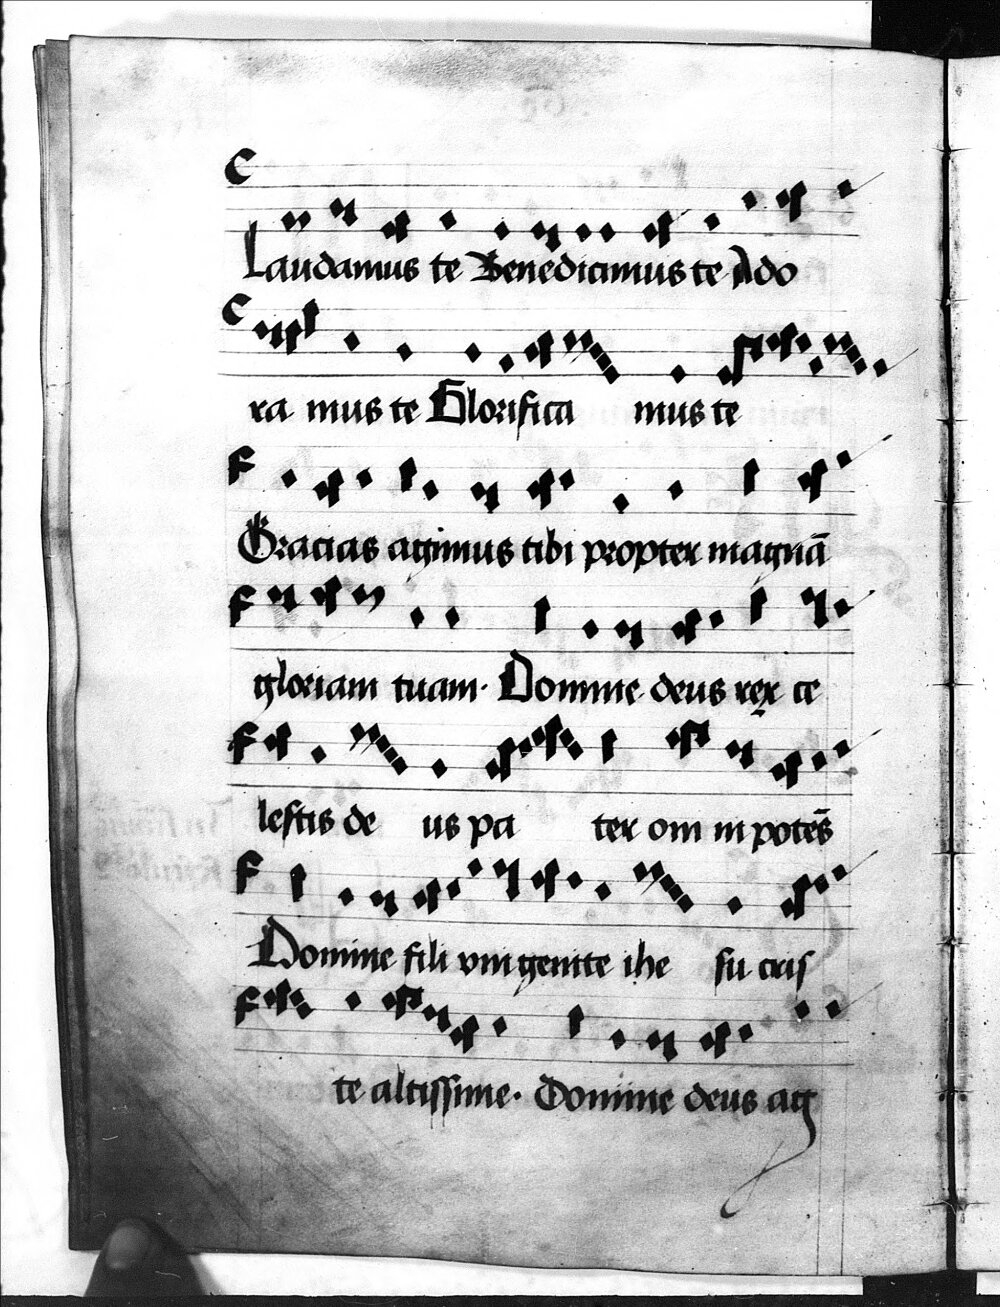 Laudamus te Benedicimus te Ado
ra mus te Glorifica mus te
Gracias agimus tibi propter magnā
gloriam tuam. Domine deus rex ce
lestis de us pa ter om nipotēs
Domine fili vnigenite ihe su cris
te altissime. Domine deus ag